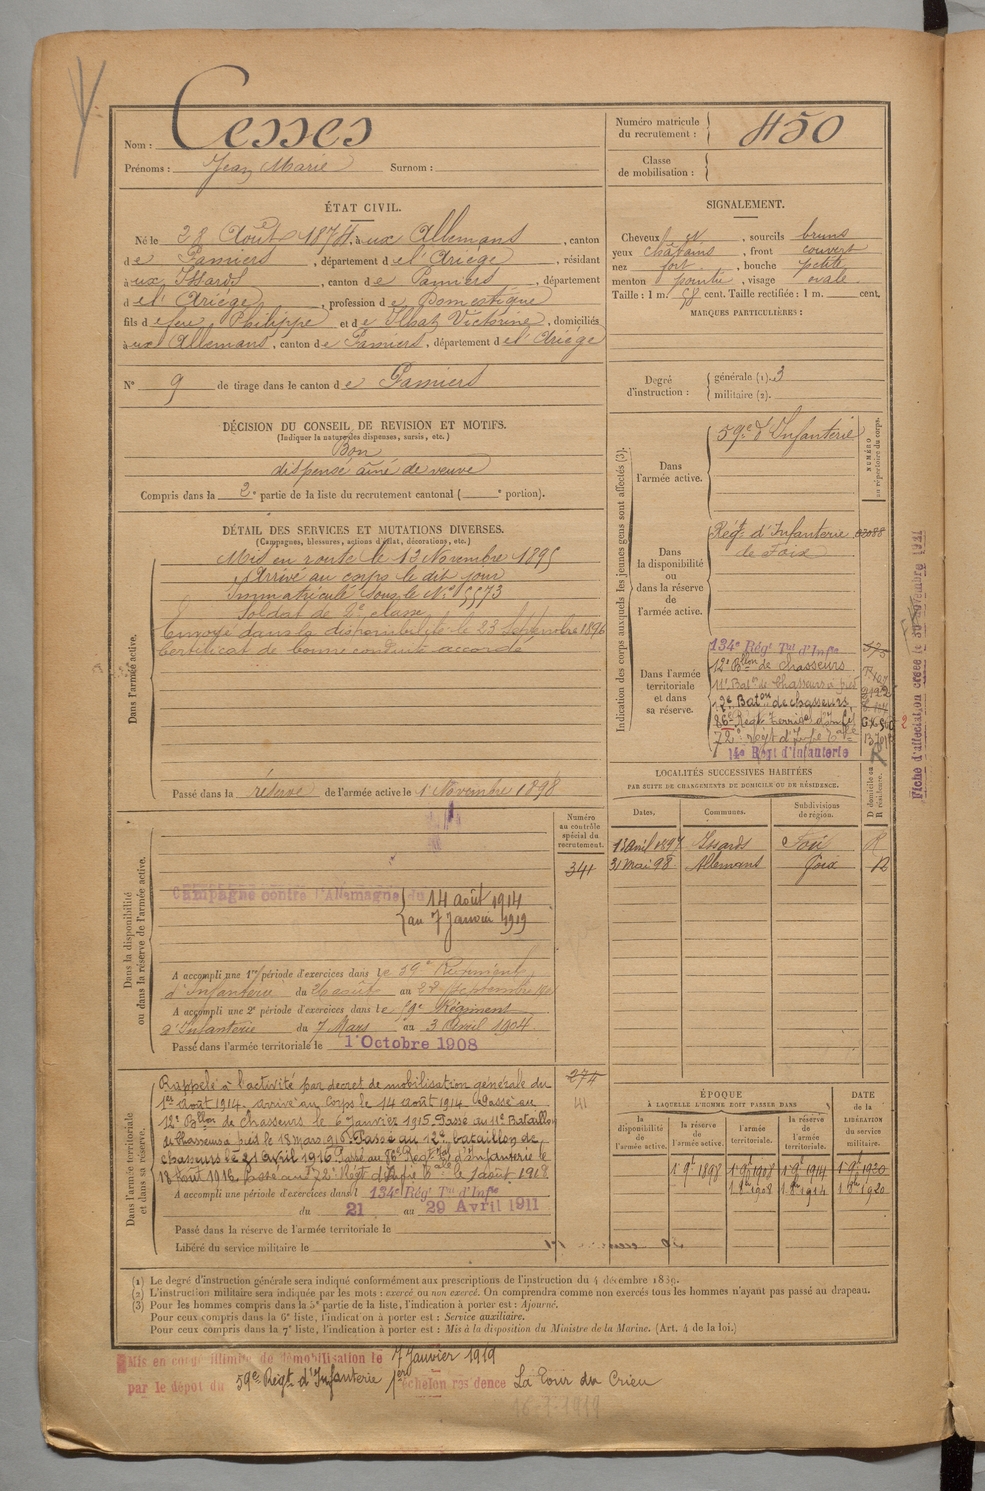 Cesses
Nom :
Prénoms : Jean Marie Surnom :
Numéro matricule
du recrutement : 450
Classe
de mobilisation :
ÉTAT CIVIL.
Né le 28 Août 1874, à ux Allemans, canton
de Pamiers, département de l'Ariège, résidant
à ux Issards, canton de Pamiers, département
de l'Ariège, profession de Domestique
fils de feu Philippe et de Ilhat Victorine, domiciliés
à ux Allemans, canton de Pamiers, département de l'Ariège
N° 9 de tirage dans le canton de Pamiers
SIGNALEMENT.
Cheveux et, sourcils bruns
yeux châtains, front couvert
nez fort, bouche petite
menton pointu, visage ovale
Taille : 1 m. 58 cent. Taille rectifiée : 1 m. cent.
MARQUES PARTICULIÈRES :
Degré
d'instruction :
générale (1). 3
militaire (2).
DÉCISION DU CONSEIL DE REVISION ET MOTIFS.
(Indiquer la nature des dispenses, sursis, etc.)
Bon
dispensé aîné de veuve
Compris dans la 2e partie de la liste du recrutement cantonal ( e portion).
DÉTAIL DES SERVICES ET MUTATIONS DIVERSES.
(Campagnes, blessures, actions d'éclat, décorations, etc.)
Dans l'armée active.
Mis en route le 13 Novembre 1895
Arrivé au corps le dit jour
Immatriculé sous le N° 5573
Soldat de 2e classe
Envoyé dans la disponibilité le 23 Septembre 1896
Certificat de bonne conduite accordé
Passé dans la réserve de l'armée active le 1 Novembre 1898
Indication des corps auxquels les jeunes gens sont affectés (3).
NUMÉRO
au répertoire du corps.
Dans
l'armée active.
59e d'Infanterie
Dans
la disponibilité
ou
dans la réserve
de
l'armée active.
Régt d'Infanterie
de Foix
Dans l'armée
territoriale
et dans
sa réserve.
134e Régt Tal d'Infie
12e Bllon de chasseurs
11e Baton de Chasseurs à pied
12e Baton de chasseurs
86e Régt Territal d'Infie
72e Régt d'Infie Tale
14e Régt d'Infanterie
Fiche d'affectation créée le novembre 1921
LOCALITÉS SUCCESSIVES HABITÉES
PAR SUITE DE CHANGEMENTS DE DOMICILE OU DE RÉSIDENCE.
Dates. Communes. Subdivisions de région. D domicile ou R résidence.
1 avril 1897 Issards Foix R
31 Mai 98 Allemans Foix D
Dans la disponibilité
ou dans la réserve de l'armée active.
Numéro
au contrôle
spécial du
recrutement.
341
Campagne contre l'Allemagne du 14 août 1914
au 7 Janvier 1919
A accompli une 1re période d'exercices dans le 59e Régiment
d'Infanterie du 26 août au 22 Septembre
A accompli une 2e période d'exercices dans le 59e Régiment
d'Infanterie du 7 Mars au 3 Avril 1904
Passé dans l'armée territoriale le 1 Octobre 1908
Dans l'armée territoriale
et dans sa réserve.
274
41
Rappelé à l'activité par décret de mobilisation générale du
1er août 1914. arrivé au corps le 14 août 1914. Passé au
12e Bllon de chasseurs le 6 Janvier 1915. Passé au 11e Bataillon
de Chasseurs à pied le 18 mars 916. Passé au 12e bataillon de
chasseurs le 21 Avril 1916. Passé au 86e Régt Tal d'Infanterie le
18 août 1916. Passé au 72e Régt d'Infie Tale le 1 août 1918
A accompli une période d'exercices dans l 134e Régt Tal d'Infie
du 21 au 29 Avril 1911
Passé dans la réserve de l'armée territoriale le
Libéré du service militaire le
ÉPOQUE
À LAQUELLE L'HOMME DOIT PASSER DANS
la disponibilité de l'armée active. la réserve de l'armée active. l'armée territoriale. la réserve de l'armée territoriale.
DATE
de la
LIBÉRATION
du service
militaire.
1 9bre 1898 1 9bre 1908 1 9bre 1914 1 9bre 1920
1 8bre 1908 1 8bre 1914 1 8bre 1920
(1) Le degré d'instruction générale sera indiqué conformément aux prescriptions de l'instruction du 4 décembre 1889.
(2) L'instruction militaire sera indiquée par les mots : exercé ou non exercé. On comprendra comme non exercés tous les hommes n'ayant pas passé au drapeau.
(3) Pour les hommes compris dans la 5e partie de la liste, l'indication à porter est : Ajourné.
Pour ceux compris dans la 6e liste, l'indication à porter est : Service auxiliaire.
Pour ceux compris dans la 7e liste, l'indication à porter est : Mis à la disposition du Ministre de la Marine. (Art. 4 de la loi.)
Mis en congé illimité de démobilisation le 7 Janvier 1919
par le dépôt du 59e Régt d'Infanterie 1er échelon résidence La Tour du Crieu